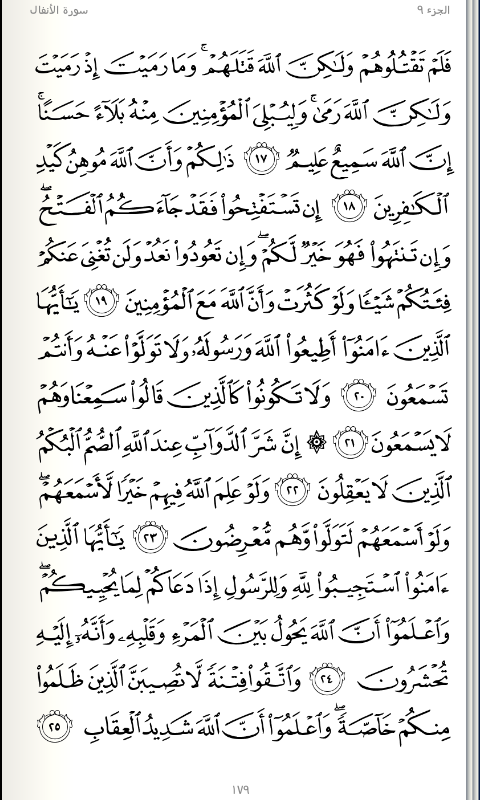 الجزء ٩
سورة الأنفال
فَلَمْ تَقْتُلُوهُمْ وَلَٰكِنَّ ٱللَّهَ قَتَلَهُمْ ۚ وَمَا رَمَيْتَ إِذْ رَمَيْتَ
وَلَٰكِنَّ ٱللَّهَ رَمَىٰ ۚ وَلِيُبْلِىَ ٱلْمُؤْمِنِينَ مِنْهُ بَلَآءً حَسَنًا ۚ
إِنَّ ٱللَّهَ سَمِيعٌ عَلِيمٌ ١٧ ذَٰلِكُمْ وَأَنَّ ٱللَّهَ مُوهِنُ كَيْدِ
ٱلْكَٰفِرِينَ ١٨ إِن تَسْتَفْتِحُوا۟ فَقَدْ جَآءَكُمُ ٱلْفَتْحُ ۖ
وَإِن تَنتَهُوا۟ فَهُوَ خَيْرٌ لَّكُمْ ۖ وَإِن تَعُودُوا۟ نَعُدْ وَلَن تُغْنِىَ عَنكُمْ
فِئَتُكُمْ شَيْـًٔا وَلَوْ كَثُرَتْ وَأَنَّ ٱللَّهَ مَعَ ٱلْمُؤْمِنِينَ ١٩ يَٰٓأَيُّهَا
ٱلَّذِينَ ءَامَنُوٓا۟ أَطِيعُوا۟ ٱللَّهَ وَرَسُولَهُۥ وَلَا تَوَلَّوْا۟ عَنْهُ وَأَنتُمْ
تَسْمَعُونَ ٢٠ وَلَا تَكُونُوا۟ كَٱلَّذِينَ قَالُوا۟ سَمِعْنَا وَهُمْ
لَا يَسْمَعُونَ ٢١ ۞ إِنَّ شَرَّ ٱلدَّوَآبِّ عِندَ ٱللَّهِ ٱلصُّمُّ ٱلْبُكْمُ
ٱلَّذِينَ لَا يَعْقِلُونَ ٢٢ وَلَوْ عَلِمَ ٱللَّهُ فِيهِمْ خَيْرًا لَّأَسْمَعَهُمْ ۖ
وَلَوْ أَسْمَعَهُمْ لَتَوَلَّوا۟ وَّهُم مُّعْرِضُونَ ٢٣ يَٰٓأَيُّهَا ٱلَّذِينَ
ءَامَنُوا۟ ٱسْتَجِيبُوا۟ لِلَّهِ وَلِلرَّسُولِ إِذَا دَعَاكُمْ لِمَا يُحْيِيكُمْ ۖ
وَٱعْلَمُوٓا۟ أَنَّ ٱللَّهَ يَحُولُ بَيْنَ ٱلْمَرْءِ وَقَلْبِهِۦ وَأَنَّهُۥٓ إِلَيْهِ
تُحْشَرُونَ ٢٤ وَٱتَّقُوا۟ فِتْنَةً لَّا تُصِيبَنَّ ٱلَّذِينَ ظَلَمُوا۟
مِنكُمْ خَآصَّةً ۖ وَٱعْلَمُوٓا۟ أَنَّ ٱللَّهَ شَدِيدُ ٱلْعِقَابِ ٢٥
١٧٩